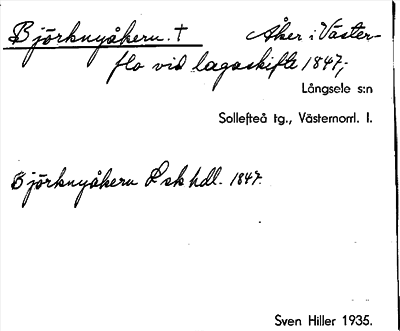 Björknyåkern. † Åker i Väster-
flo vid lagaskifte 1847;-
Långsele s:n
Sollefteå tg., Västernorrl. l.
Björknyåkern Lsk hdl. 1847.
Sven Hiller 1935.